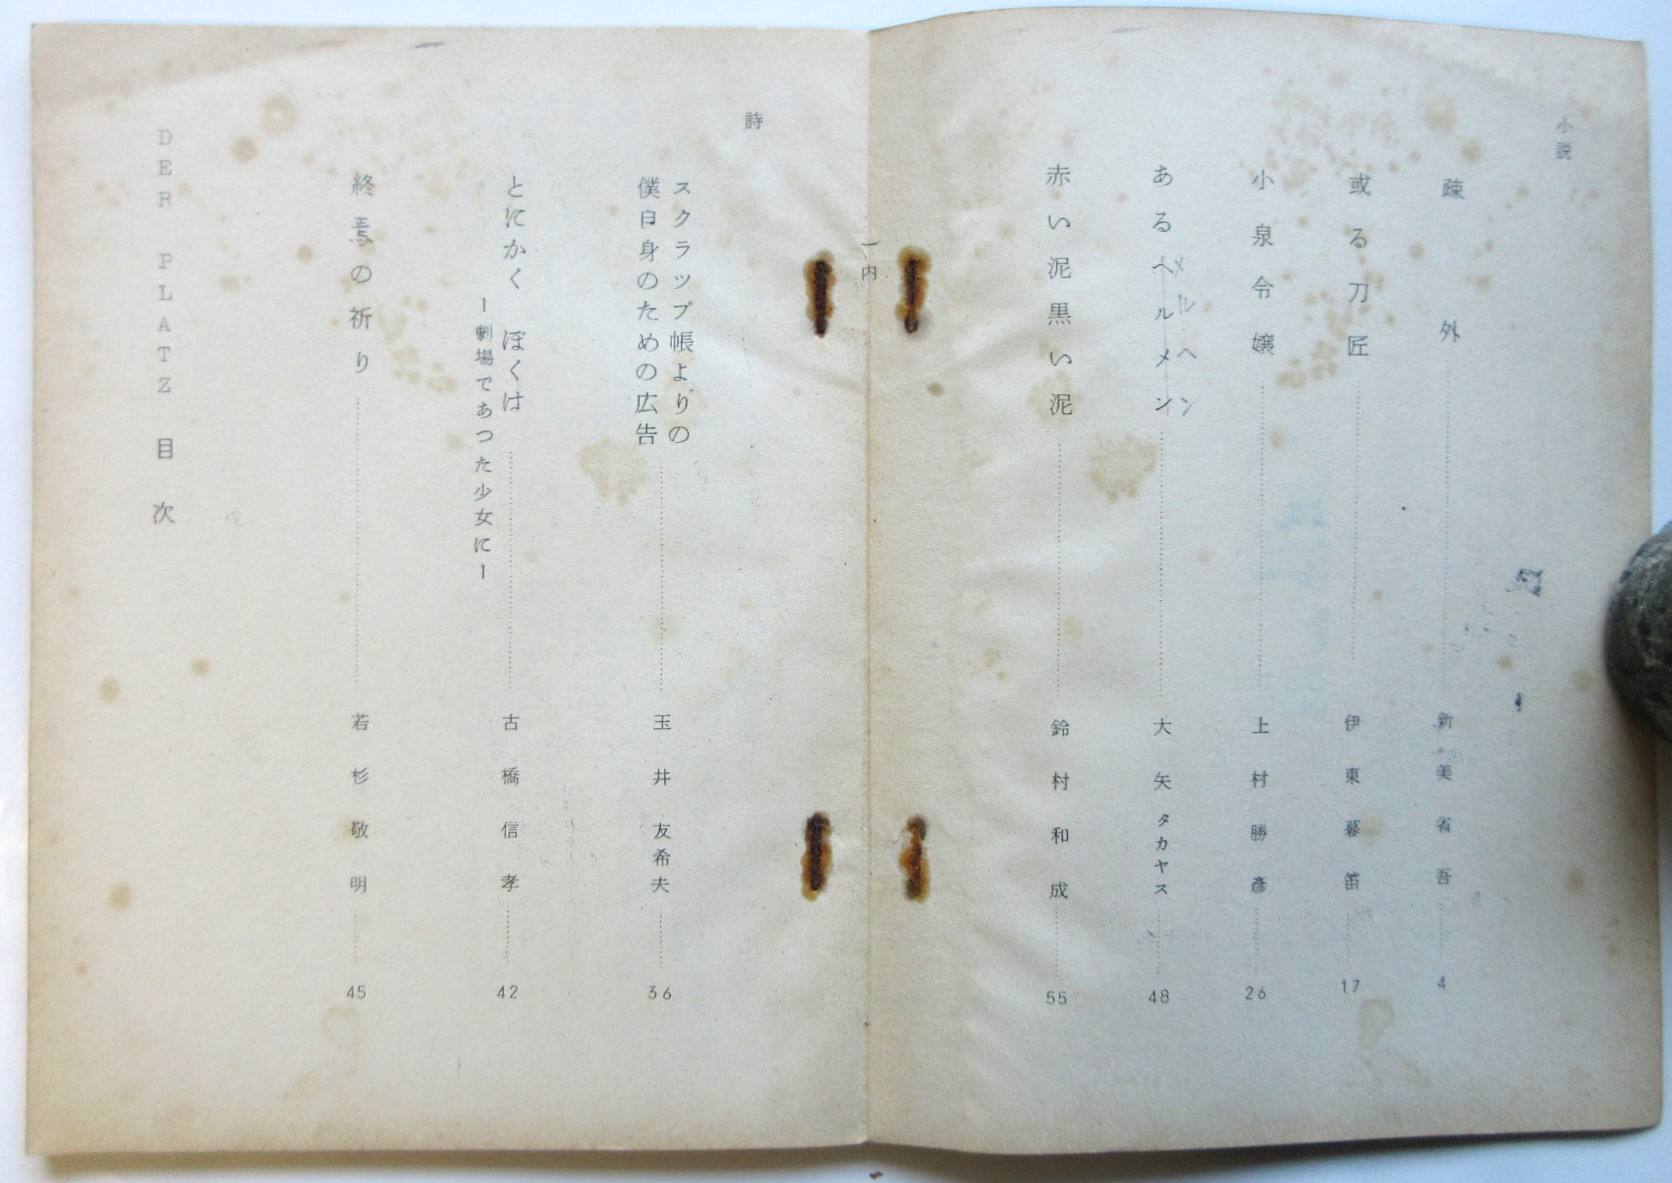 小説
疎外 新美省吾 4
或る刀匠 伊東暮笛 17
小泉令嬢 上村勝彦 26
あるヘルメン 大矢タカヤス 48
メルヘン
赤い泥黒い泥 鈴村和成 55
詩
スクラップ帳よりの
僕自身のための広告 玉井友希夫 36
とにかく ぼくは 古橋信孝 42
ー劇場であつた少女にー
終焉の祈り 若杉敬明 45
DER PLATZ 目次